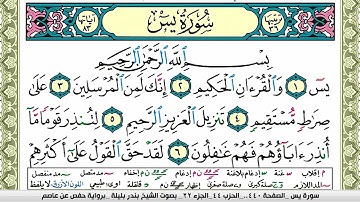 ترتيبها ٣٦ سُورَةُ يسٓ آياتها ٨٣
بِسْمِ ٱللَّهِ ٱلرَّحْمَٰنِ ٱلرَّحِيمِ
يسٓ ١ وَٱلْقُرْءَانِ ٱلْحَكِيمِ ٢ إِنَّكَ لَمِنَ ٱلْمُرْسَلِينَ ٣ عَلَىٰ
صِرَٰطٍ مُّسْتَقِيمٍ ٤ تَنزِيلَ ٱلْعَزِيزِ ٱلرَّحِيمِ ٥ لِتُنذِرَ قَوْمًا مَّآ
أُنذِرَ ءَابَآؤُهُمْ فَهُمْ غَٰفِلُونَ ٦ لَقَدْ حَقَّ ٱلْقَوْلُ عَلَىٰٓ أَكْثَرِهِمْ
سورة يس _ الصفحة ٤٤٠_ الحزب ٤٤_ الجزء ٢٢_ بصوت الشيخ بندر بليلة _ برواية حفص عن عاصم